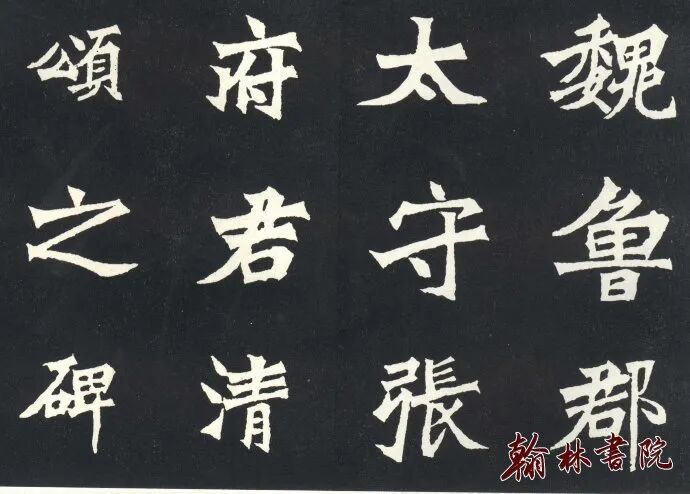 魏魯郡
太守張
府君清
頌之碑
翰林書院